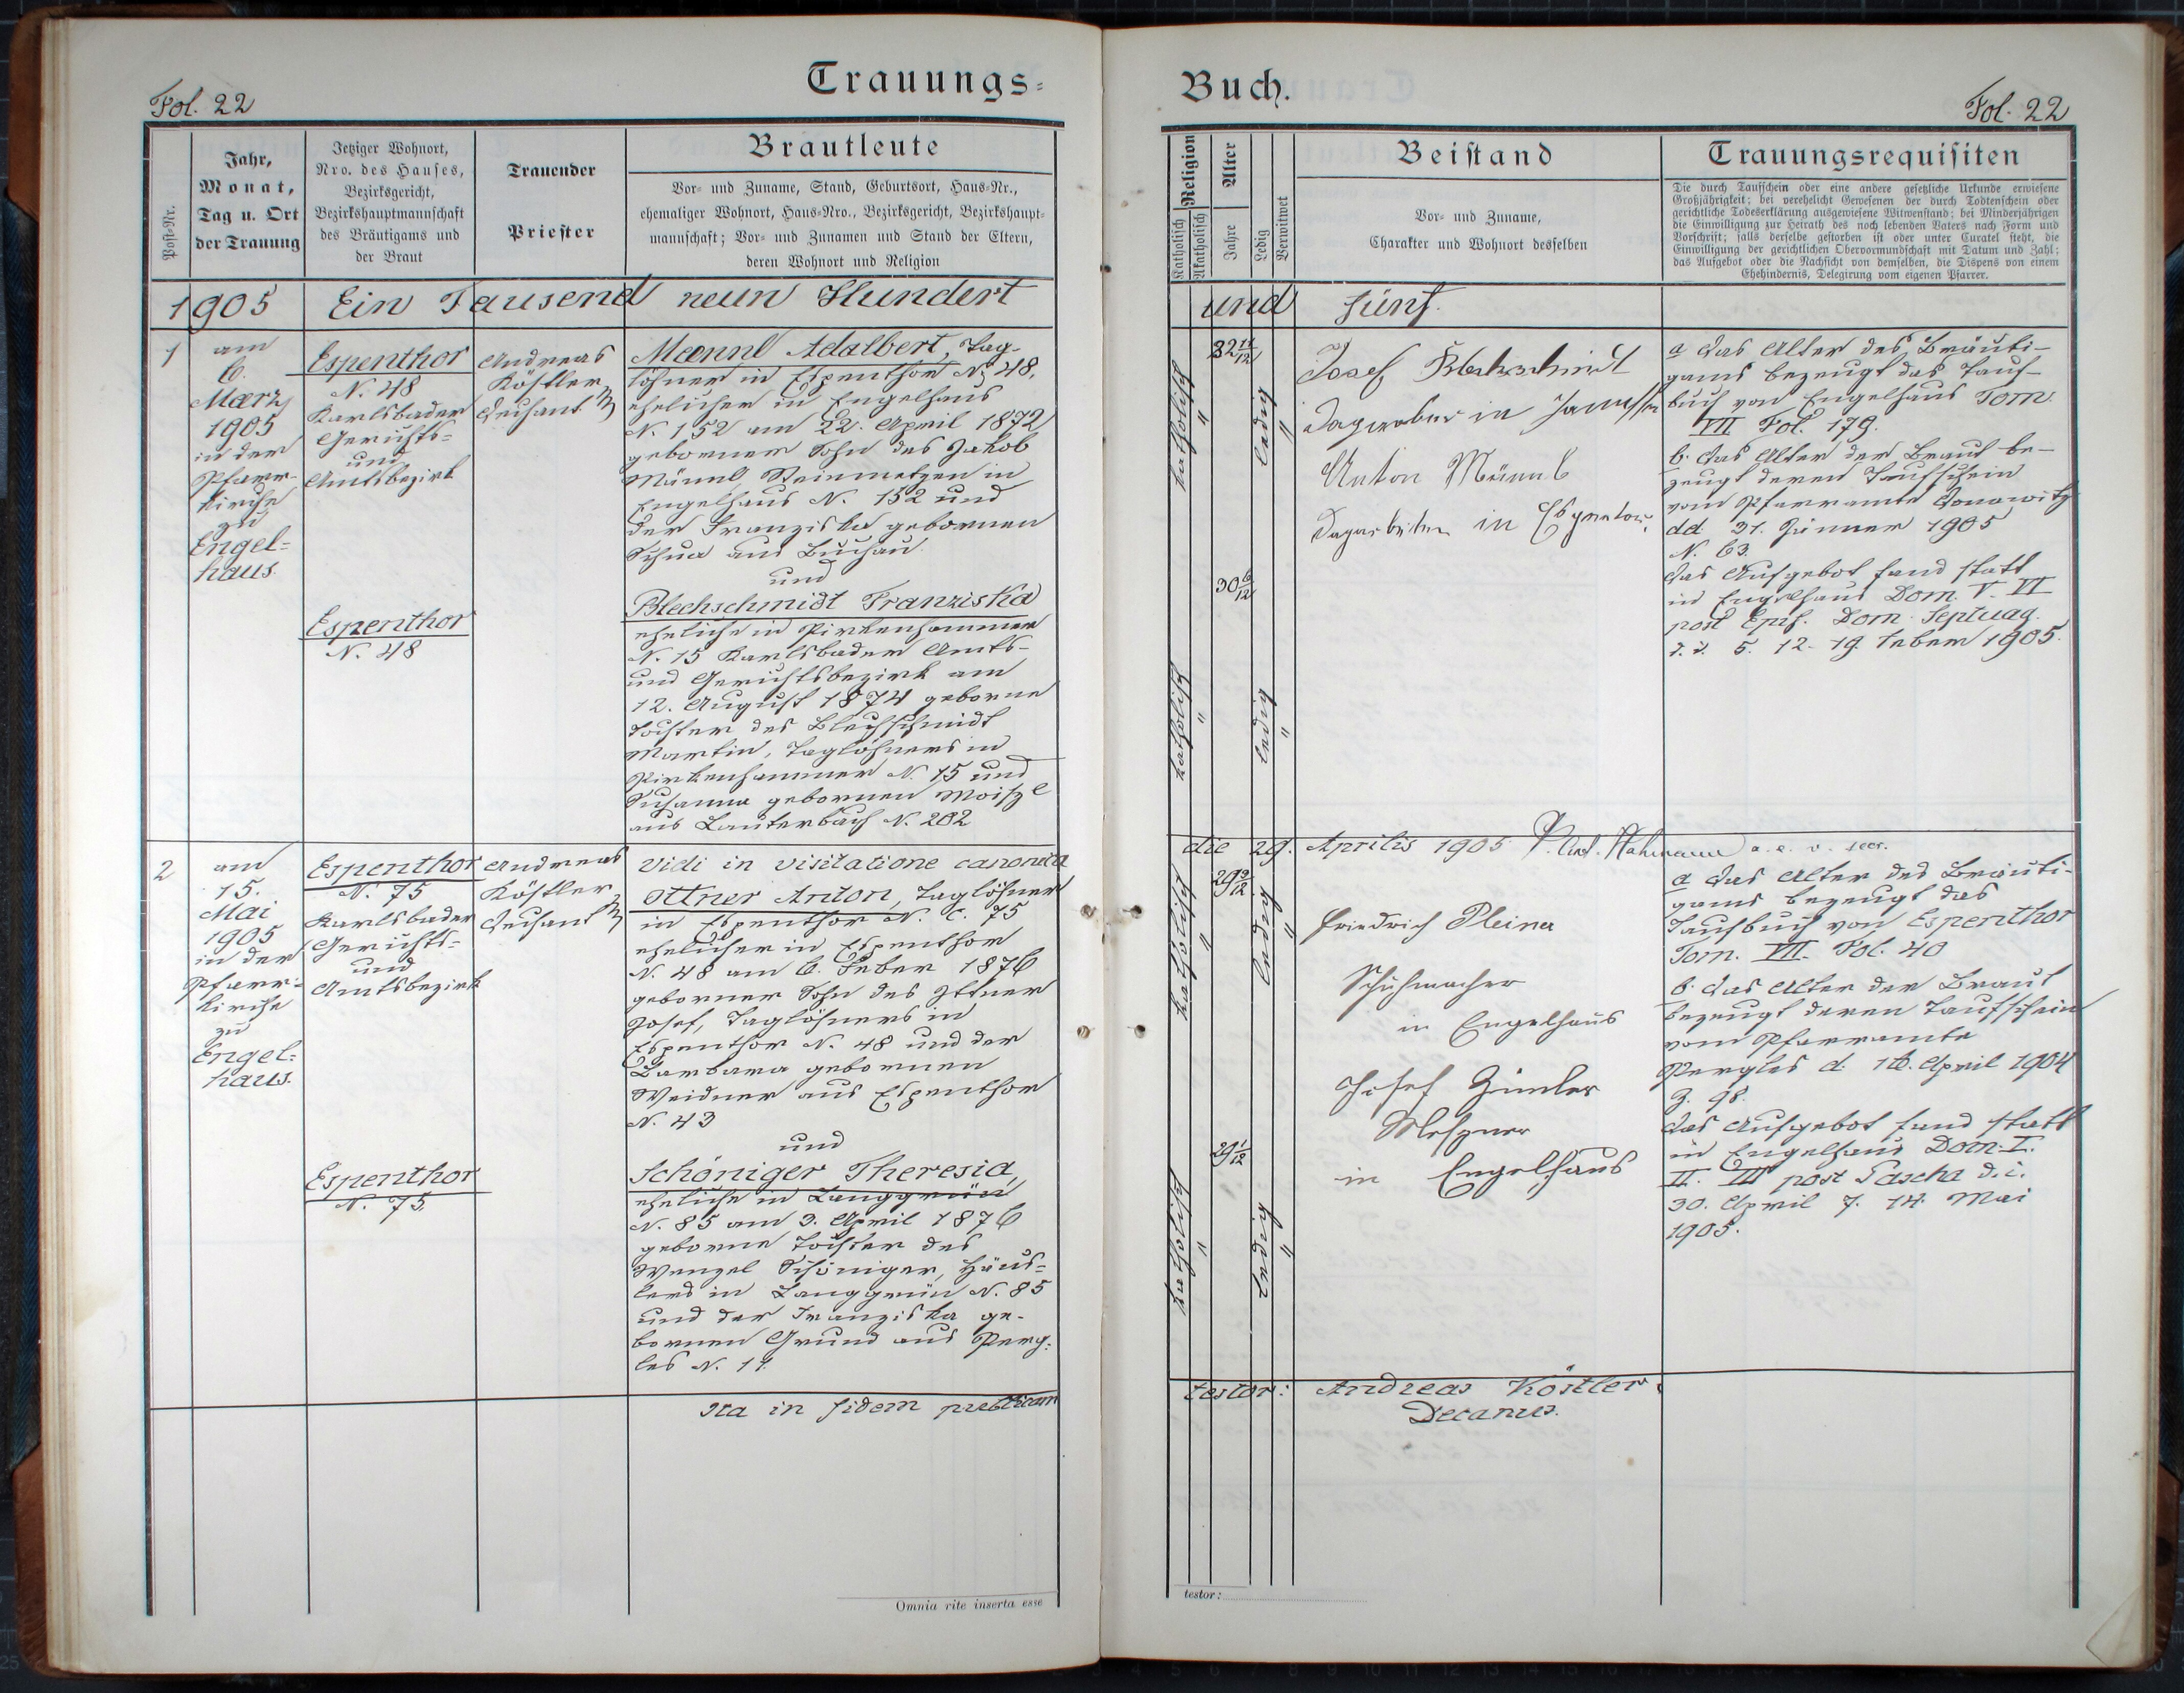 Trauungs=
Fol. 22
Post-Nr.
Jahr,
Monat,
Tag u. Ort
der Trauung
Jetziger Wohnort,
Nro. des Hauses,
Bezirksgericht,
Bezirkshauptmannschaft
des Bräutigams und
der Braut
Trauender
Priester
Brautleute
Vor- und Zuname, Stand, Geburtsort, Haus-Nr.,
ehemaliger Wohnort, Haus-Nro., Bezirksgericht, Bezirkshaupt-
mannschaft; Vor- und Zunamen und Stand der Eltern,
deren Wohnort und Religion
1905 Ein Tausend neun Hundert
1
am
6.
März
1905
in der
Pfarr-
kirche
zu
Engel=
haus.
Espenthor
N. 48
Karlsbader
Gerichts=
und
Amtsbezirk
Espenthor
N. 48
Andreas
Köstler
Dechant
Mannl Adalbert, Tag-
löhner in Espenthor N. 48,
ehelicher in Engelhaus
N. 152 am 22. April 1872
geborner Sohn des Jakob
Männl, Steinmetzen in
Engelhaus N. 152 und
der Franziska gebornen
aus Buchau.
und
Blechschmidt Franziska
eheliche in Pirkenhammer
N. 15 Karlsbader Amts-
und Gerichtsbezirk am
12. August 1874 geborne
Tochter des Blechschmidt
Martin, Taglöhners in
Pirkenhammer N. 15 und
Susanna gebornen
aus Lauterbach N. 202
2
am
15.
Mai
1905
in der
Pfarr-
kirche
zu
Engel=
haus.
Espenthor
N. 75
Karlsbader
Gerichts=
und
Amtsbezirk
Espenthor
N. 75
Andreas
Köstler
Dechant
Vidi in visitatione canonica
Ittner Anton, Taglöhner
in Espenthor N. C. 75
ehelicher in Espenthor
N. 48 am 6. Feber 1876
geborner Sohn des Ittner
Josef, Taglöhners in
Espenthor N. 48 und der
Barbara gebornen
Weidner aus Espenthor
N. 43
und
Schöniger Theresia,
eheliche in Langgrün
N. 85 am 3. April 1876
geborne Tochter des
Wenzel Schöniger, Häus=
lers in Langgrün N. 85
und der Franziska ge-
bornen Grund aus Perg=
les N. 11.
Ita in fidem publicam
Omnia rite inserta esse
Buch.
Fol. 22
Religion
Katholisch
Akatholisch
Alter
Jahre
Ledig
Verwitwet
Beistand
Vor- und Zuname,
Charakter und Wohnort desselben
Trauungsrequisiten
Die durch Taufschein oder eine andere gesetzliche Urkunde erwiesene
Großjährigkeit; bei verehelicht Gewesenen der durch Todtenschein oder
gerichtliche Todeserklärung ausgewiesene Witwenstand; bei Minderjährigen
die Einwilligung zur Heirath des noch lebenden Vaters nach Form und
Vorschrift; falls derselbe gestorben ist oder unter Curatel steht, die
Einwilligung der gerichtlichen Obervormundschaft mit Datum und Zahl;
das Aufgebot oder die Nachsicht von demselben, die Dispens von einem
Ehehindernis, Delegirung vom eigenen Pfarrer.
und fünf.
katholisch "
32 11/12
ledig "
Josef Blechschmidt
in
Anton Männl
in
a das Alter des Bräuti-
gams bezeugt das Tauf-
buch von Engelhaus Tom.
VII Fol. 179.
b. das Alter der Braut be-
zeugt deren Taufschein
vom Pfarramte Donawitz
dd 31. Jänner 1905
N. 63.
das Aufgebot fand statt
in Engelhaus Dom. V. VI
post Epif. Dom. Septuag.
d. i. 5. 12. 19. Feber 1905.
katholisch "
30 6/12
ledig "
die 29. Aprilis 1905
katholisch "
29 3/12
ledig "
Friedrich Pleiner
Schuhmacher
in Engelhaus
Josef
Meßner
in Engelhaus
a das Alter des Bräuti-
gams bezeugt das
Taufbuch von Espenthor
Tom. VII. Fol. 40
b. das Alter der Braut
bezeugt deren Taufschein
vom Pfarramte
Pergles d. 16. April 1904
Z. 98.
das Aufgebot fand statt
in Engelhaus Dom. I.
II. III post Pascha d. i.
30. April 7. 14. Mai
1905.
katholisch "
29 1/12
ledig "
testor: Andreas Köstler
Decanus.
testor: